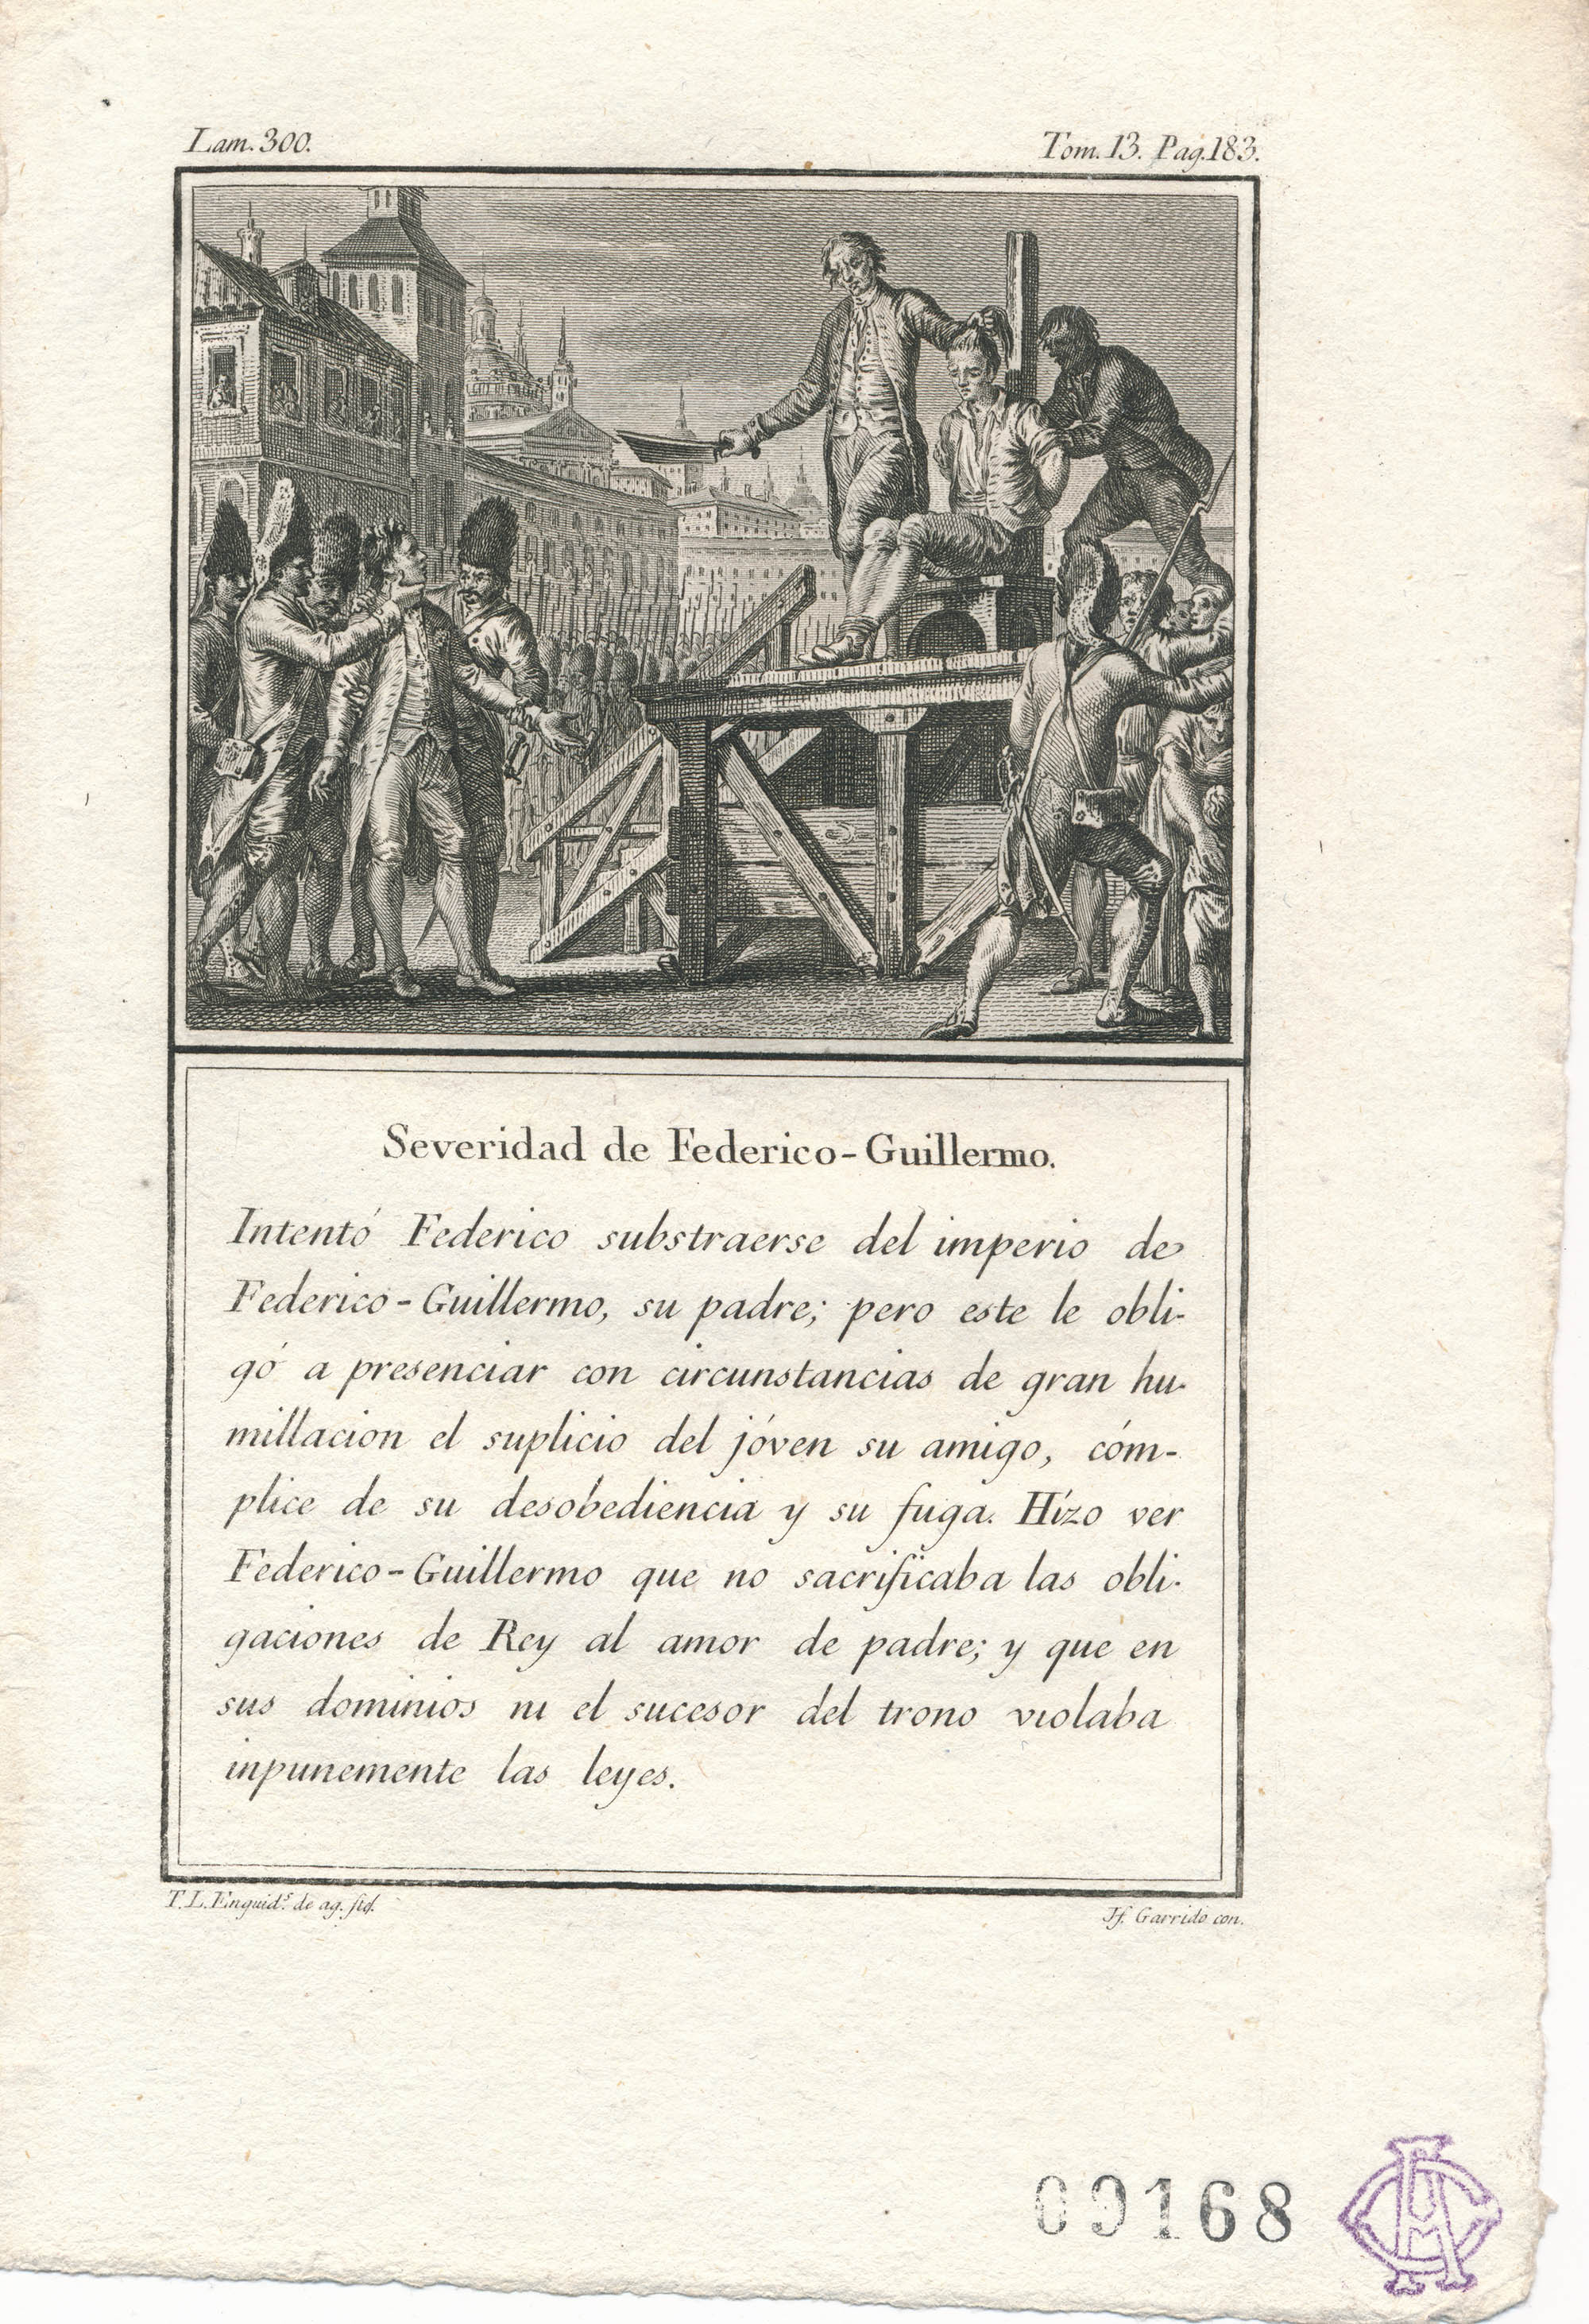 Lam. 300.
Tom. 13. Pag. 183.
Severidad de Federico-Guillermo.
Intentó Federico substraerse del imperio de
Federico-Guillermo, su padre; pero este le obli-
gó a presenciar con circunstancias de gran hu-
millacion el suplicio del jóven su amigo, cóm-
plice de su desobediencia y su fuga. Hízo ver
Federico-Guillermo que no sacrificaba las obli-
gaciones de Rey al amor de padre; y que en
sus dominios ni el sucesor del trono violaba
inpunemente las leyes.
T. L. Enguid.s de ag. fid.
Jf. Garrido con.
09168